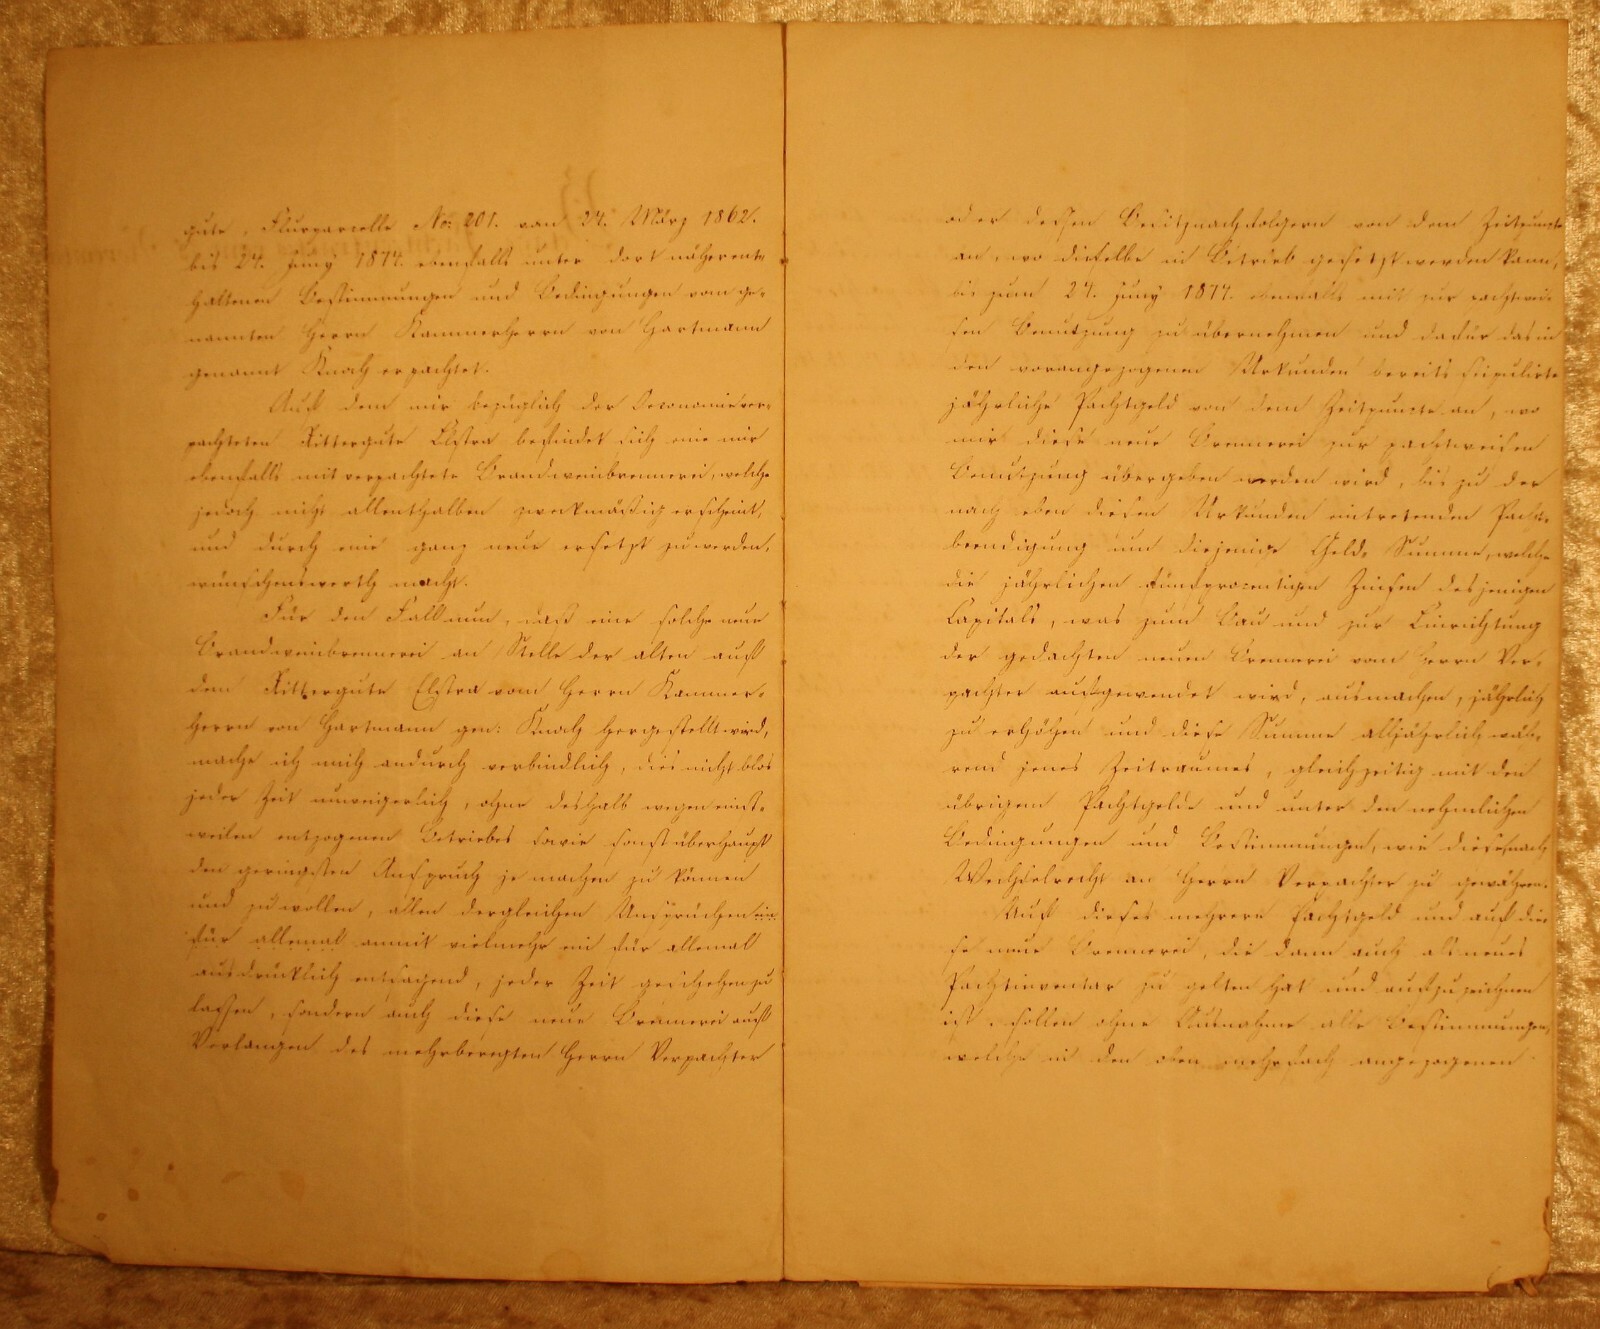 gute, Flurparcelle No: 201. vom 24. März 1862.
bis 24. Juny 1874. ebenfalls unter dort näher ent-
haltenen Bestimmungen und Bedingungen vom ge-
nannten Herrn Kammerherrn von Hartmann
genannt Knoch erpachtet.
Auf dem mir bezüglich der Oeconomie ver-
pachteten Rittergute Elstra befindet sich eine mir
ebenfalls mit verpachtete Brandweinbrennerei, welche
jedoch nicht allenthalben zweckmäßig erscheint,
und durch eine ganz neue ersetzt zu werden,
wünschenswerth macht.
Für den Fall nun, daß eine solche neue
Brandweinbrennerei an Stelle der alten auf
dem Rittergute Elstra vom Herrn Kammer-
herrn von Hartmann gen: Knoch hergestellt wird,
mache ich mich andurch verbindlich, dies nicht blos
jeder Zeit unweigerlich, ohne deshalb wegen einst-
weilen entzogenen Betriebes sowie sonst überhaupt
den geringsten Anspruch je machen zu können
und zu wollen, allen dergleichen Ansprüchen ein
für allemal anmit vielmehr ein für allemal
ausdrücklich entsagend, jeder Zeit geschehen zu
lassen, sondern auch diese neue Brennerei auf
Verlangen des mehrberegten Herrn Verpachter
oder dessen Besitznachfolgern von dem Zeitpuncte
an, wo dieselbe in Betrieb gesetzt werden kann,
bis zum 24. Juny 1874. ebenfalls mit zur pachtwei-
sen Benutzung zu übernehmen und dafür das in
den vorangezogenen Urkunden bereits stipulirte
jährliche Pachtgeld von dem Zeitpuncte an, wo
mir diese neue Brennerei zur pachtweisen
Benutzung übergeben werden wird, bis zu der
nach eben diesen Urkunden eintretenden Pacht-
beendigung um diejenige Geld-Summe, welche
die jährlichen fünfprocentigen Zinsen desjenigen
Capitals, was zum Bau und zur Einrichtung
der gedachten neuen Brennerei vom Herrn Ver-
pachter aufgewendet wird, ausmachen, jährlich
zu erhöhen und diese Summe alljährlich wäh-
rend jenes Zeitraumes, gleichzeitig mit den
übrigen Pachtgelde und unter den nehmlichen
Bedingungen und Bestimmungen, wie dieses, nach
Wechselrecht an Herrn Verpachter zu gewähren.
Auf dieses mehrere Pachtgeld und auf die-
se neue Brennerei, die dann auch als neues
Pachtinventar zu gelten hat und aufzuzeichnen
ist, sollen ohne Ausnahme alle Bestimmungen,
welche in den oben mehrfach angezogenen